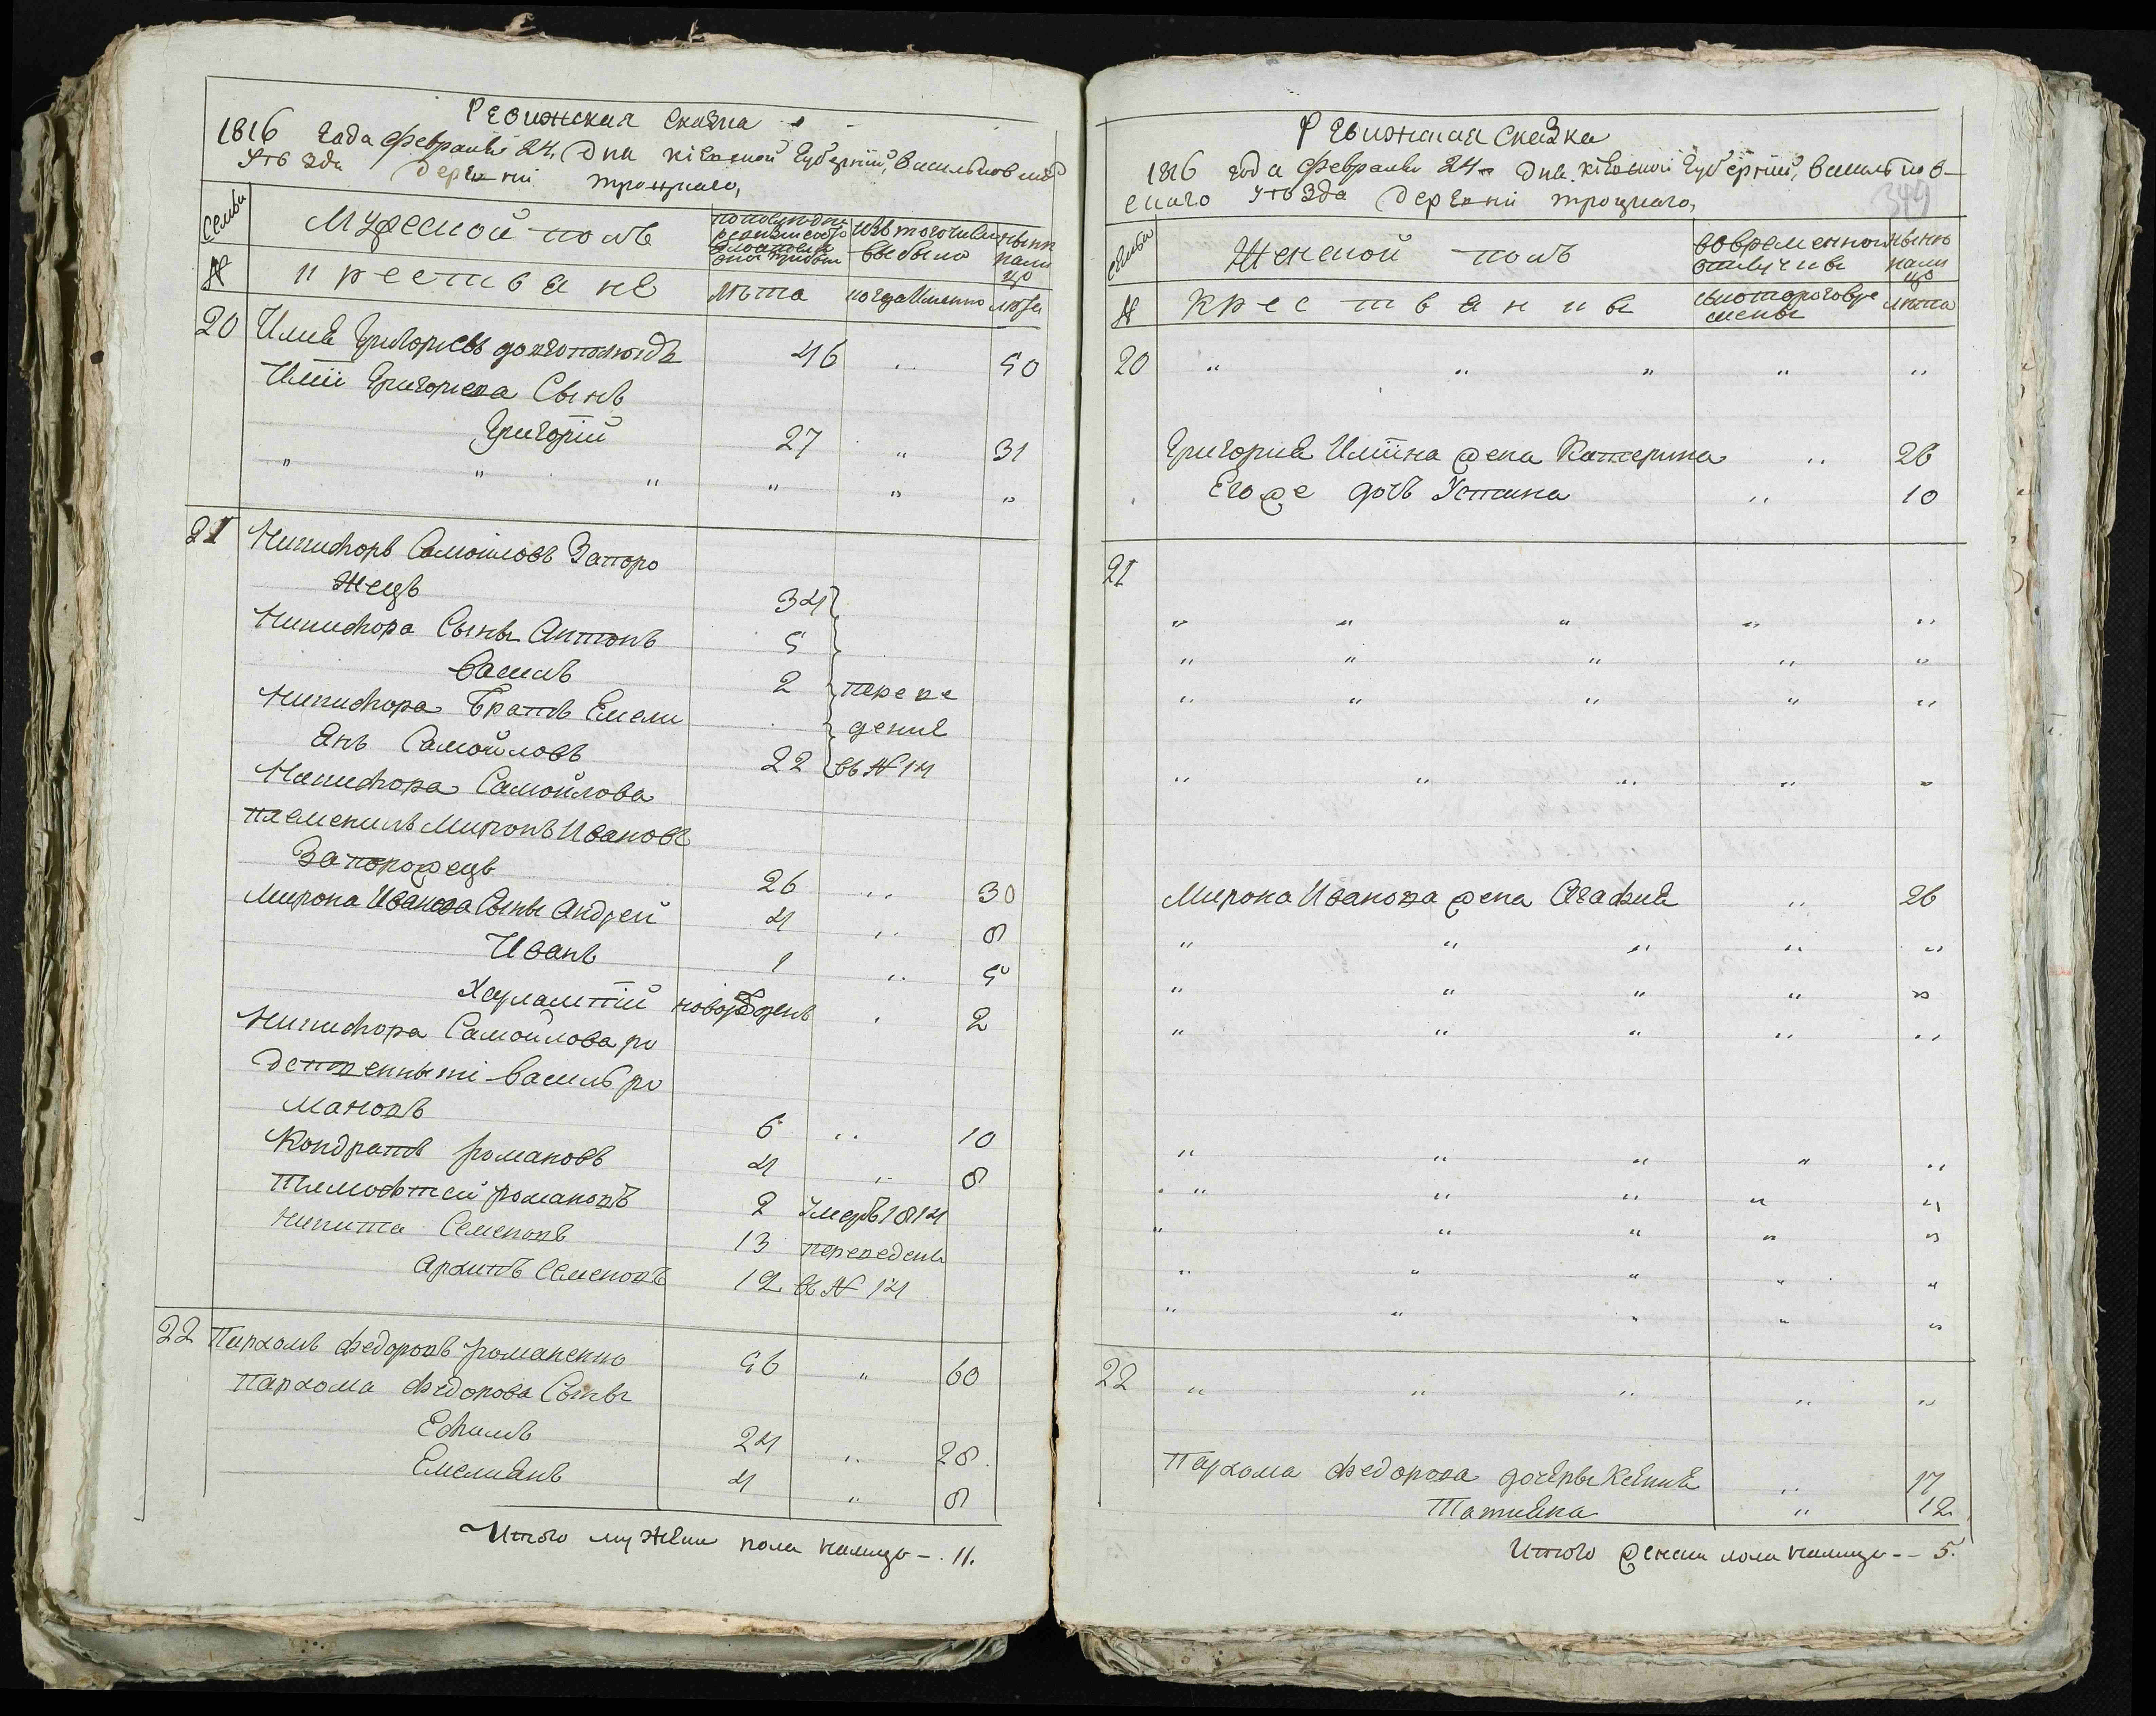 Ревижская Сказка
1816 года февраля 24. Дня кіевской губерніи, васильков
Уѣзда Деревни троцкаго,
Семьи Мужеской полъ по последней ревизіи состояло и после оной прибыло Изъ того числа выбыло нынѣ на лицо
№ крестьяне лѣта когда Именно лѣта
20 Илія Григорьевъ 46 „ 50
Иліи Григорьева Сынъ
Григорій 27 „ 31
„ „ „ „ „ „
21 Никифоръ Самойловъ Запоро
жецъ 34
Никифора Сыны Антонъ 5
Василь 2 переве
Никифора Братъ Емели
дение
Янъ Самойловъ 22 въ № 14
Никифора Самойлова
племеникъ Миронъ Ивановъ
Запорожецъ 26 „ 30
Мирона Иванова Сыны Андрей 4 „ 8
Иванъ 1 „ 5
Харлампій новорожденъ „ 2
Никифора Самойлова ро
дственныкі Василь ро
мановъ 6 „ 10
Кондратъ романовъ 4 „ 8
Тимофтей романовъ 2 Умеръ 1814
Никита Семеновъ 13 переведены
Архипъ Семеновъ 12 въ № 14
22 Пархомъ Федоровъ романенко 56 „ 60
Пархома Федорова Сыны
Ефимъ 24 „ 28
Емелиянъ 4 „ 8
Итого мужеска пола налицо - . 11.
Ревижская Сказка
1816 года февраля 24 Дня кіевской губерніи, васильков-
скаго Уѣзда Деревни троцкаго,
349
Семьи Женской полъ во временной отлучкѣ нынѣ на лицо
№ крестьянки съ которого времены лѣта
20 „ „ „ „ „
Григория Иліина жена Катерина „ 26
Егоже дочь Устина „ 10
21
„ „ „ „ „
„ „ „ „ „
„ „ „ „ „
„ „ „ „ „
Мирона Иванова жена Агафия „ 26
„ „ „ „ „
„ „ „ „ „
„ „ „ „ „
„ „ „ „ „
„ „ „ „ „
„ „ „ „ „
„ „ „ „ „
„ „ „ „ „
22 „ „ „ „ „
Пархома Федорова дочеры Ксения „ 17
Татияна „ 12
Итого женска пола налицо - - 5.